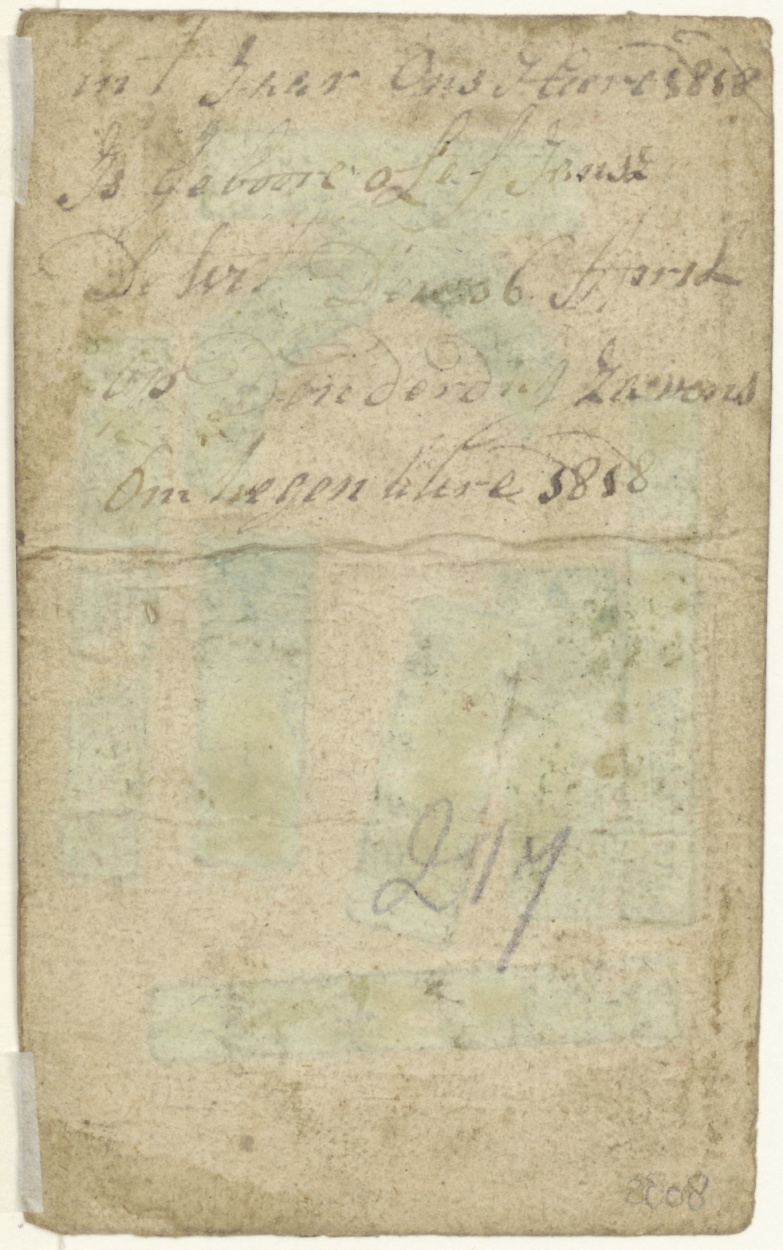 int Jaar Ons Heere 1818
Is geboore olef Jansz
De wit Den 16 April
op Donderdag Zaevens
om negen uure 1818
217
8008